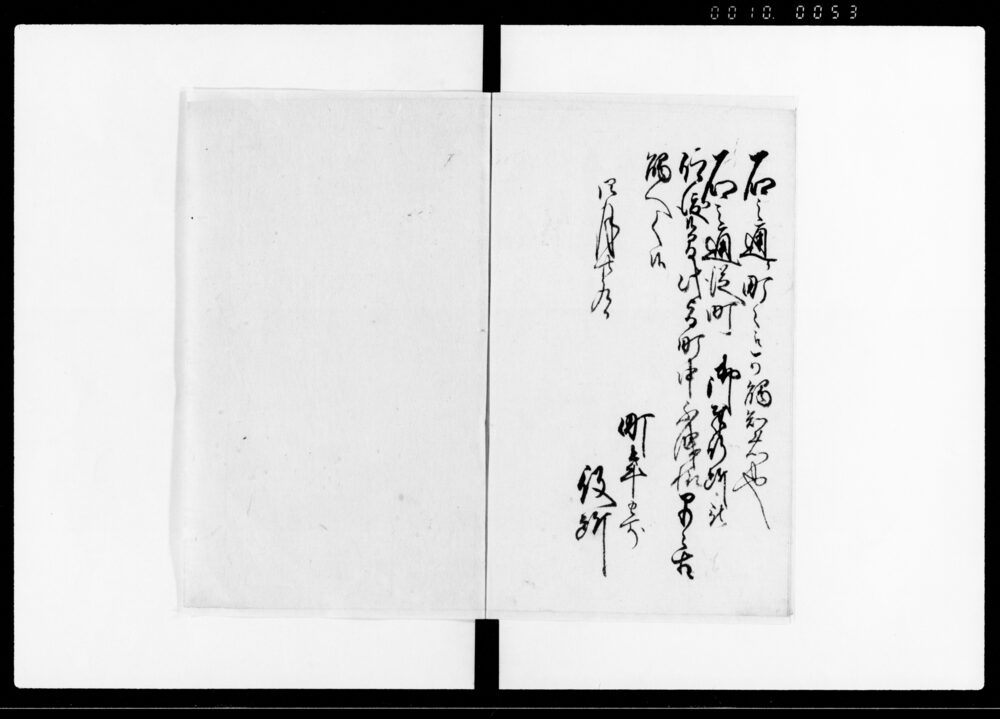 0010. 0053
右之通町々え可觸知者也
右之通従町御奉行所被
仰渡候間此旨町中不洩様早々
觸候
四月
町年寄
役所